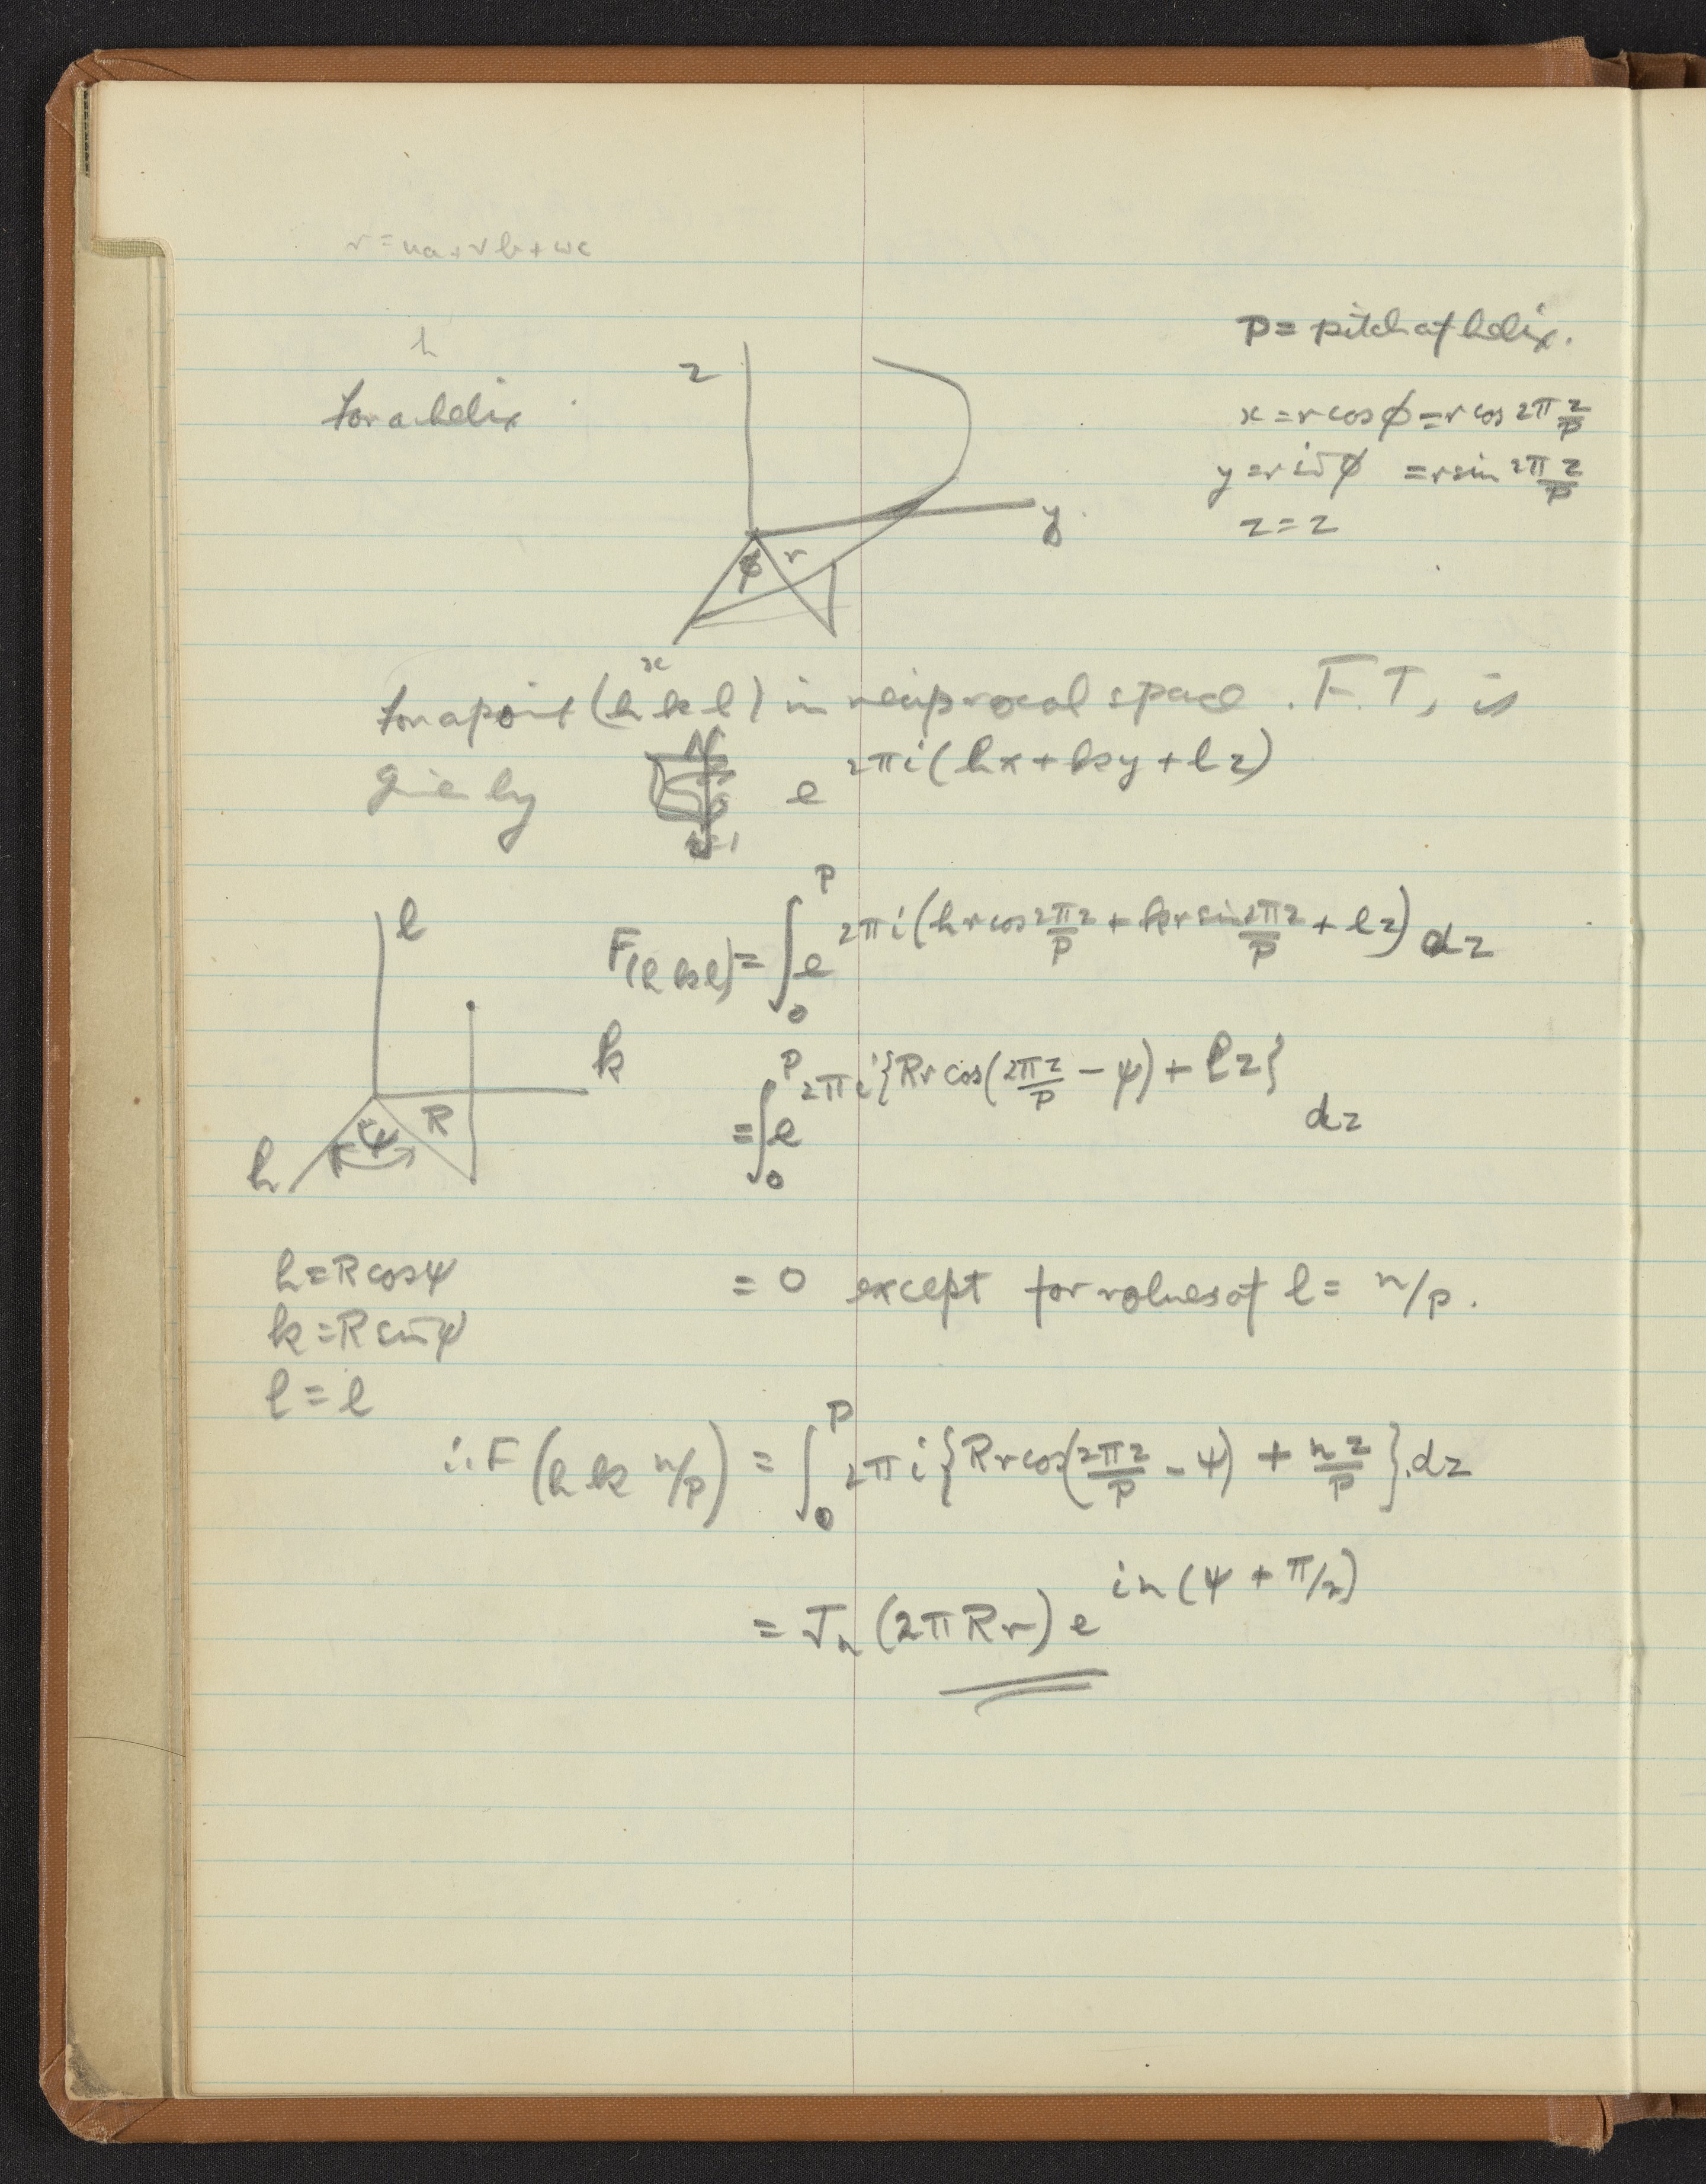 r = ua + vb + wc
p = pitch of helix.
h
z
For a helix
x = r cos φ = r cos 2π z/p
y = r sin φ = r sin 2π z/p
z = z
y
φ r
x
For a point (h k l) in reciprocal space. F.T. is
given by e^{2πi(hx + ky + lz)}
l
F(h k l) = ∫_0^p e^{2πi(hr cos 2πz/p + kr sin 2πz/p + lz)} dz
k
= ∫_0^p e^{2πi{Rr cos(2πz/p − ψ) + lz}} dz
R
ψ
h
h = R cos ψ
= 0 except for values of l = n/p.
k = R sin ψ
l = l
∴ F(h k n/p) = ∫_0^p 2πi{Rr cos(2πz/p − ψ) + nz/p}.dz
= J_n (2πRr) e^{in(ψ + π/2)}